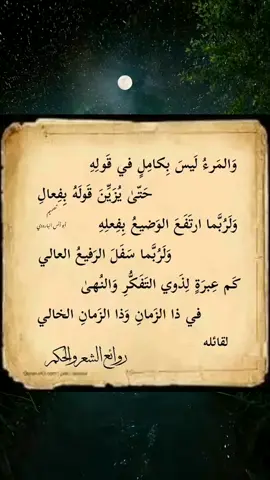 وَالمَرءُ لَيسَ بِكامِلٍ في قَولِهِ
حَتّىٰ يُزَيِّنَ قَولَهُ بِفِعالِ
تصميم
وَلَرُبَّما ارتَفَعَ الوَضيعُ بِفِعلِهِ
وَلَرُبَّما سَفَلَ الرَفيعُ العالي
كَم عِبرَةٍ لِذَوي التَفَكُّرِ وَالنُهىٰ
في ذا الزَمانِ وَذا الزَمانِ الخالي
لقائله
روائع الشعر والحكم